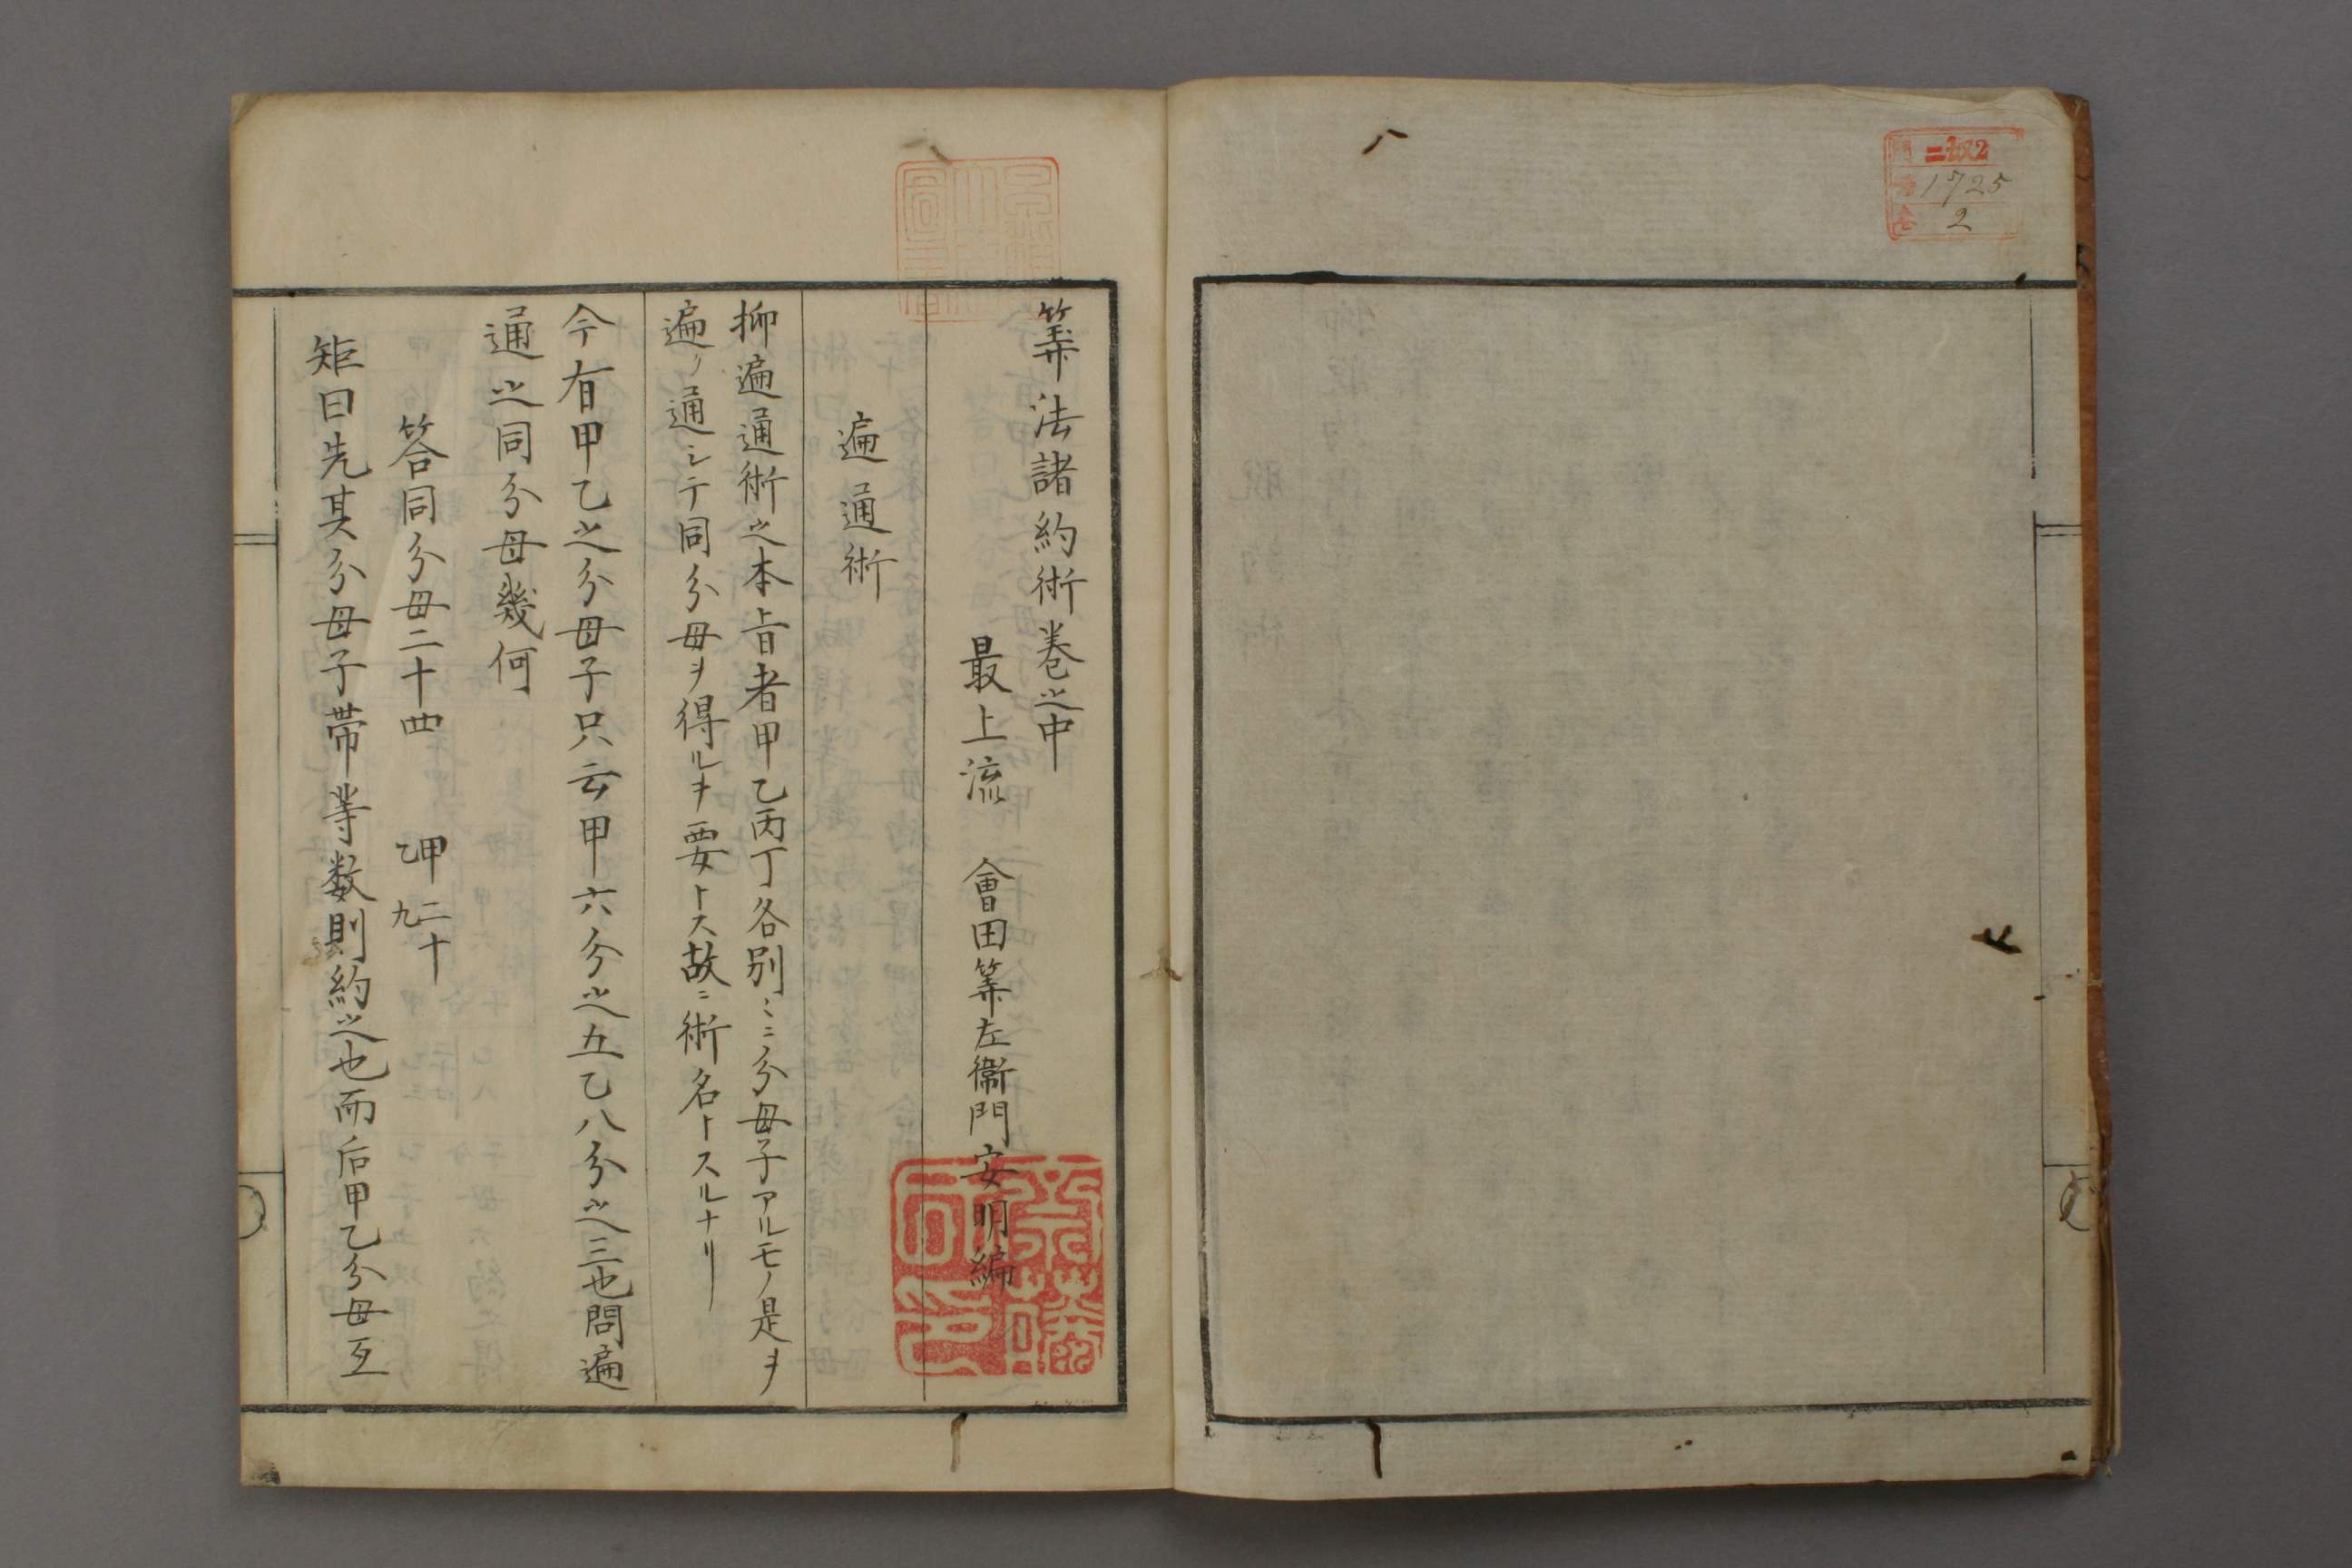 二402
1725
2
筭法諸約術巻之中
最上流 會田筭左衞門安明編
遍通術
抑遍通術之本旨者甲乙丙丁各別ミニ分母子アルモノ是ヲ
遍ク通シテ同分母ヲ得ルヲ要トス故ニ術名トスルナリ
今有甲乙之分母子只云甲六分之五乙八分之三也問遍
通之同分母幾何
答同分母二十四 甲二十 乙九
矩曰先其分母子帯等数則約之也而后甲乙分母互